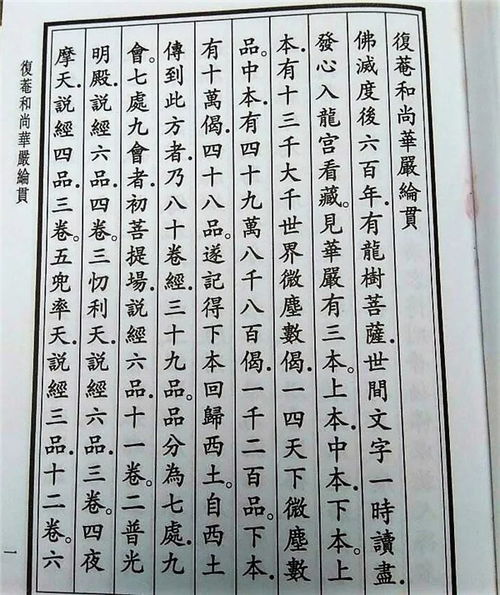 復菴和尚華嚴綸貫
佛滅度後六百年有龍樹菩薩世間文字一時讀盡
發心入龍宮看藏見華嚴有三本上本中本下本上
本有十三千大千世界微塵數偈一四天下微塵數
品中本有四十九萬八千八百偈一千二百品下本
有十萬偈四十八品遂記得下本回歸西土自西土
傳到此方者乃八十卷經三十九品品分為七處九
會七處九會者初菩提場說經六品十一卷二普光
明殿說經六品四卷三忉利天說經六品三卷四夜
摩天說經四品三卷五兜率天說經三品十二卷六
復菴和尚華嚴綸貫
一